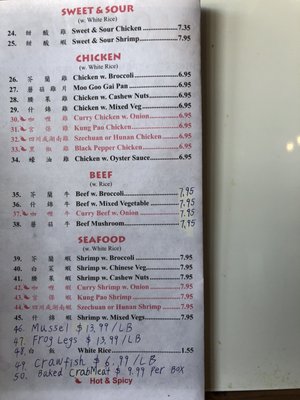 SWEET & SOUR
(w. White Rice)
24. 甜酸雞 Sweet & Sour Chicken 7.35
25. 甜酸蝦 Sweet & Sour Shrimp 7.95
CHICKEN
(w. White Rice)
26. 芥蘭雞 Chicken w. Broccoli 6.95
27. 蘑菇雞片 Moo Goo Gai Pan 6.95
28. 腰果雞 Chicken w. Cashew Nuts 6.95
29. 什錦雞 Chicken w. Mixed Veg 6.95
30. 咖喱雞 Curry Chicken w. Onion 6.95
31. 宮保雞 Kung Pao Chicken 6.95
32. 四川或湖南雞 Szechuan or Hunan Chicken 6.95
33. 黑椒雞 Black Pepper Chicken 6.95
34. 蠔油雞 Chicken w. Oyster Sauce 6.95
BEEF
(w. Rice)
35. 芥蘭牛 Beef w. Broccoli 7.95
36. 什錦牛 Beef w. Mixed Vegetable 7.95
37. 咖喱牛 Curry Beef w. Onion 7.95
38. 蘑菇牛 Beef Mushroom 7.95
SEAFOOD
(w. White Rice)
39. 芥蘭蝦 Shrimp w. Broccoli 7.95
40. 白菜蝦 Shrimp w. Chinese Veg. 7.95
41. 腰果蝦 Shrimp w. Cashew Nuts 7.95
42. 咖喱蝦 Curry Shrimp w. Onion 7.95
43. 宮保蝦 Kung Pao Shrimp 7.95
44. 四川或湖南蝦 Szechuan or Hunan Shrimp 7.95
45. 什錦蝦 Shrimp w. Mixed Vegs 7.95
46. Mussel $13.99/LB
47. Frog Legs $13.99/LB
48. 白飯 White Rice 1.55
49. Crawfish $6.99/LB
50. Baked CrabMeat $9.99 Per Box
Hot & Spicy